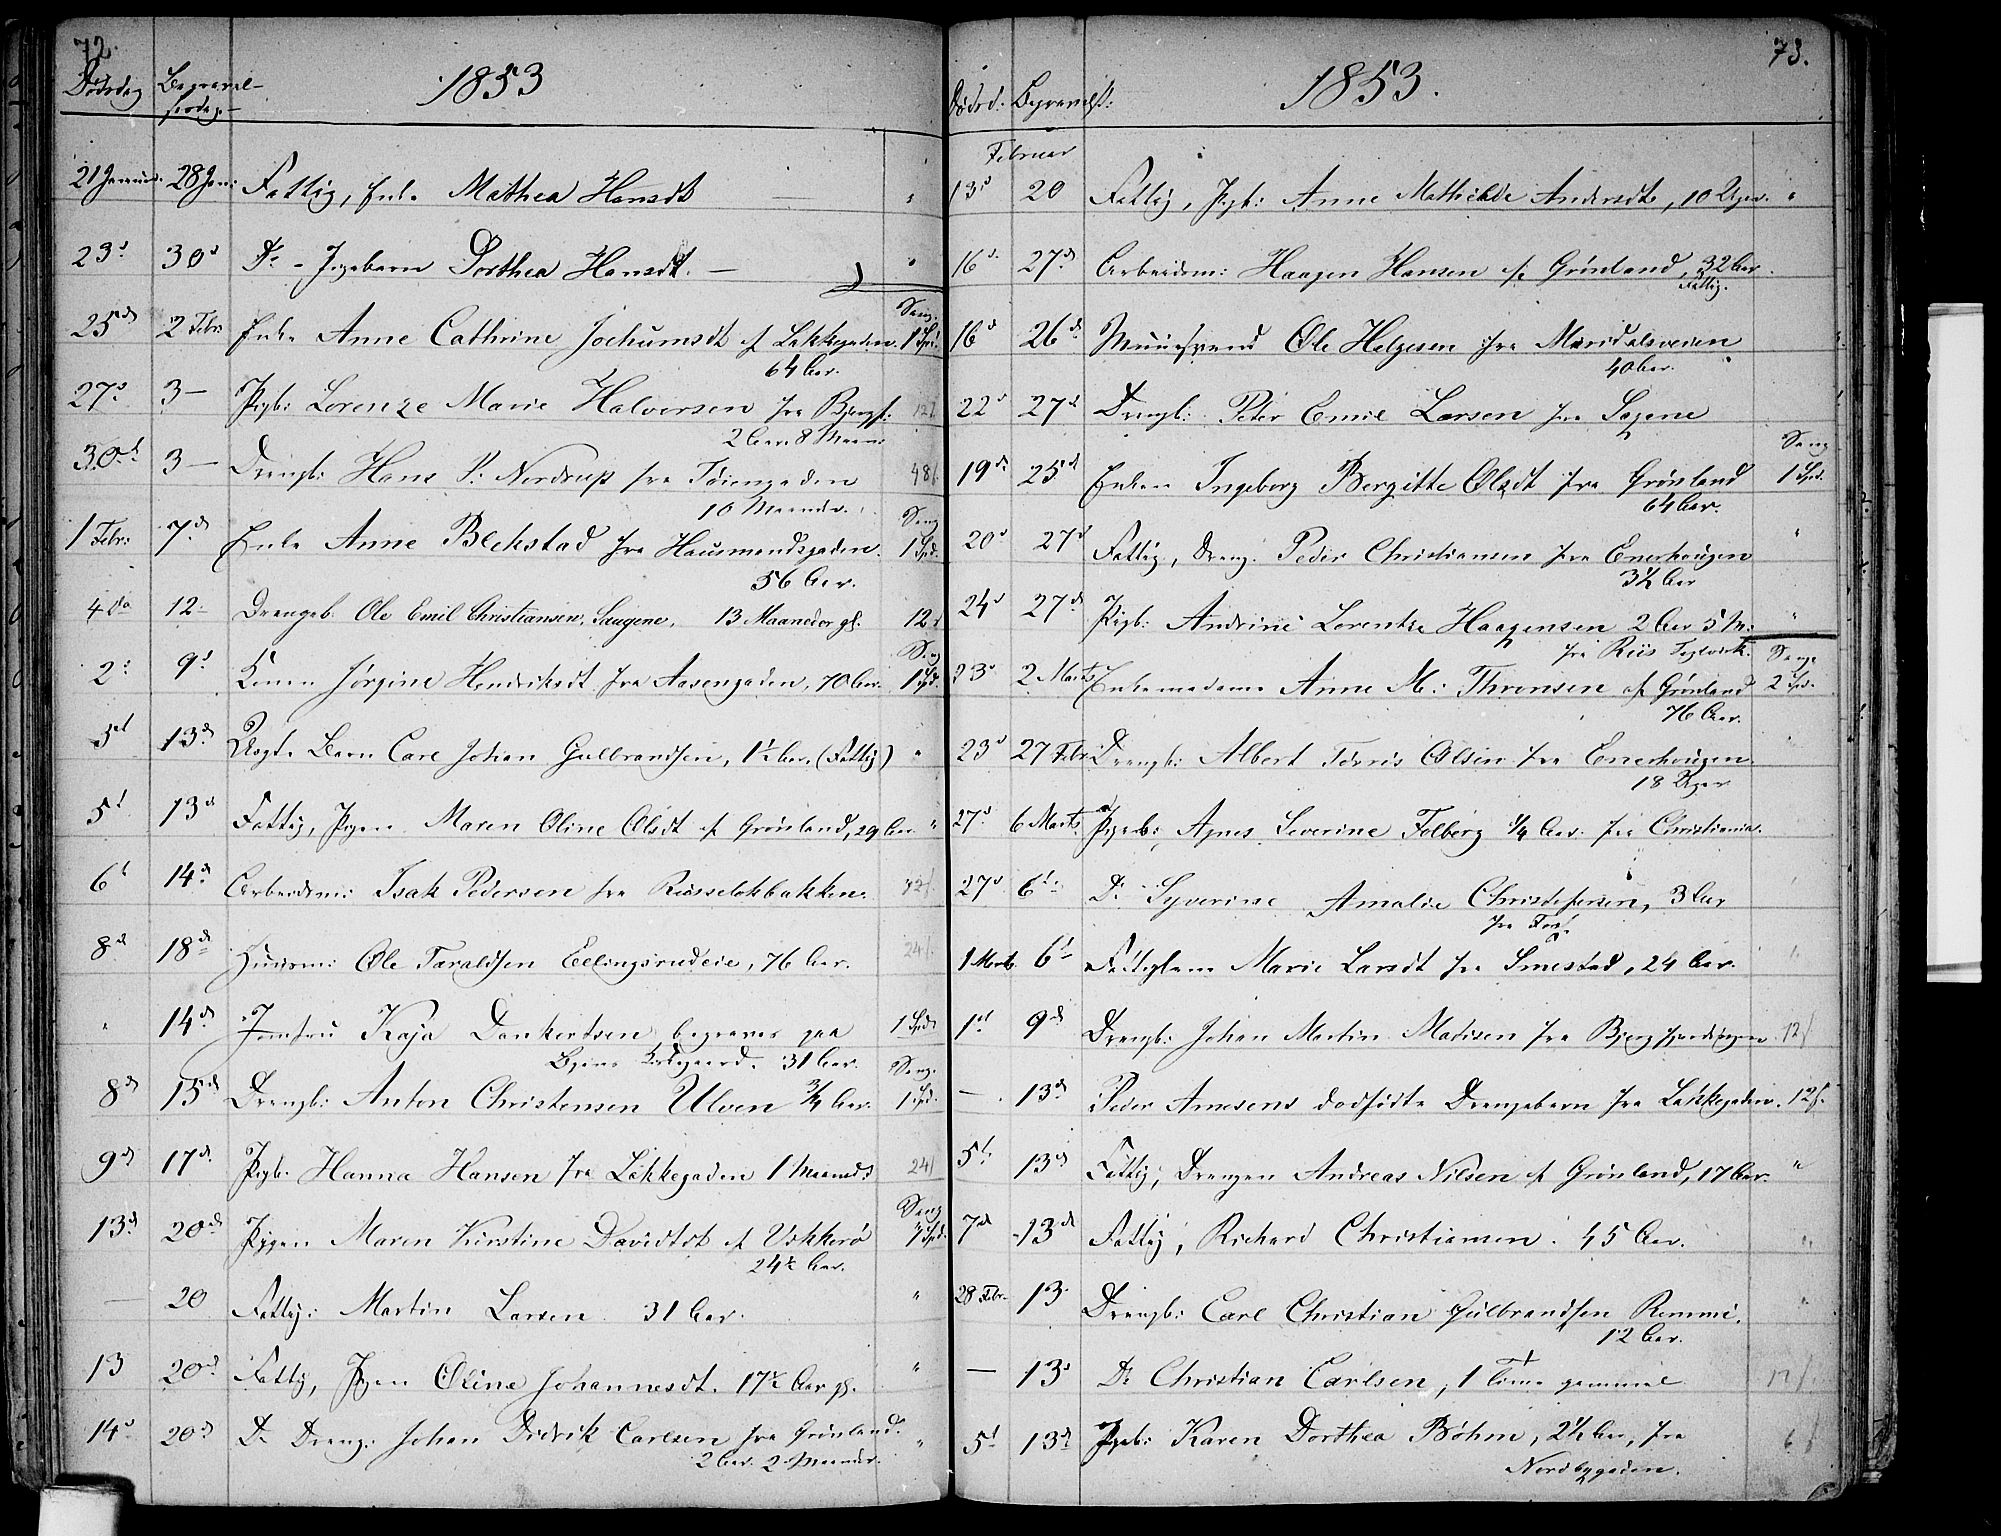 72.
Dødsdag Begravelsesdag
1853
21 Januar. 28 Jan: Fattig, Enke Mathea Hansdt "
23d 30d Do - Pigebarn Dorthea Hansdt. — "
Sang.
25de 2 Febr Enke Anne Cathrine Jochumsdt af Lakkegaden. 1 Spd.
64 Aar.
27d 3 — Pigb: Lorenze Marie Halvorsen fra Bjergf: 12
2 Aar 8 Maan:
30te 3 — Drengb: Hans P. Nordrup fra Tøiengaden 48
10 Maander.
Sang
1 Febr: 7de Enke Anne Blekstad fra Hausmandsgaden. 1 Spd.
56 Aar.
4de 12 — Drengeb. Ole Emil Christiansen, Saugene, 13 Maaneder gl. 12
Sang
2: 9d Konen Jørgine Hendriksdt fra Aasengaden, 70 Aar. 1 Spd.
5d 13de Uegte Barn Carl Johan Gulbrandsen, 1½ Aar. (Fattig) "
5t 13d Fattig, Pigen Maren Oline Olsdt af Grønland, 29 Aar "
6t 14de Arbeidsm: Isak Pedersen fra Ruseløkbakken.
8d 18de Huusm: Ole Taraldsen Ellingsrudeie, 76 Aar. 24
" 14de Jomfru Kaja Dankertsen begraves paa 1 Spd
Byens Kirkegaard. 31 Aar.
Sang.
8de 15de Drengb: Anton Christensen Ulven ¾ Aar. 1 Spd.
9de 17de Pigb. Hanna Hansen fra Lakkegaden 1 Maaned 24
Sang
13de 20de Pigen Maren Kirstine Davidsdt af Vækkerø 1 Spd.
24½ Aar.
— 20 Fattig: Martin Larsen 31 Aar. "
13 20de Fattig, Pigen Oline Johannesdt. 17½ Aar gl. "
14d 20d Do Dreng: Johan Didrik Carlsen fra Grønland. "
2 Aar. 2 Maander.
73.
Dødsd. Begravelsd:
1853.
Februar
13d 20 Fattig, Pigb: Anne Mathilde Andersdt, 10 Uger. "
16d 27de Arbeidsm: Haagen Hansen af Grønland, 32 Aar.
Fattig.
16d 26de Muursvend Ole Helgesen fra Maridalsveien "
40 Aar.
22d 27d Drengb: Peter Emil Larsen fra Sagene
Sang
19de 25de Enken Ingeborg Bergitte Olsdt fra Grønland 1 Spd.
64 Aar.
20d 27d Fattig, Dreng. Peder Christiansen fra Enerhougen "
3½ Aar
24d 27de Pigb: Andrine Lorentze Haagensen 2 Aar 5 M: "
fra Riis Teglverk. Sang
23d 2 Marts Enkemadame Anne M: Thronsen af Grønland 2 Spd.
76 Aar.
23d 27 Febr. Drengb: Albert Olsen fra Enerhougen. "
18 Uger
27d 6 Marts Pigeb: Agnes Severine Tolberg ¼ Aar. fra Christiania.
27d 6t: Do Syverine Amalie Christofersen, 3 Aar
1 Marts 6t Fattiglem Marie Larsdt fra Smestad, 24 Aar.
1st 9de Drengb: Johan Martin Madisen fra Bjergfjerdingen 12
— 13de Peder Arnesens dødfødte Drengebarn fra Lakkegaden. 12
5t: 13de Fattig, Drengen Andreas Nilsen af Grønland, 17 Aar. "
7de 13de Fattig, Richard Christiansen. 45 Aar. "
28 Febr. 13 Drengb: Carl Christian Gulbrandsen Rommi. "
12 Aar.
— 13d Do Christian Carlsen, 1 Time gammel 12
5t 13de Pigeb: Karen Dorthea Bøhm, 2½ Aar, fra 6
Nordbygaden.